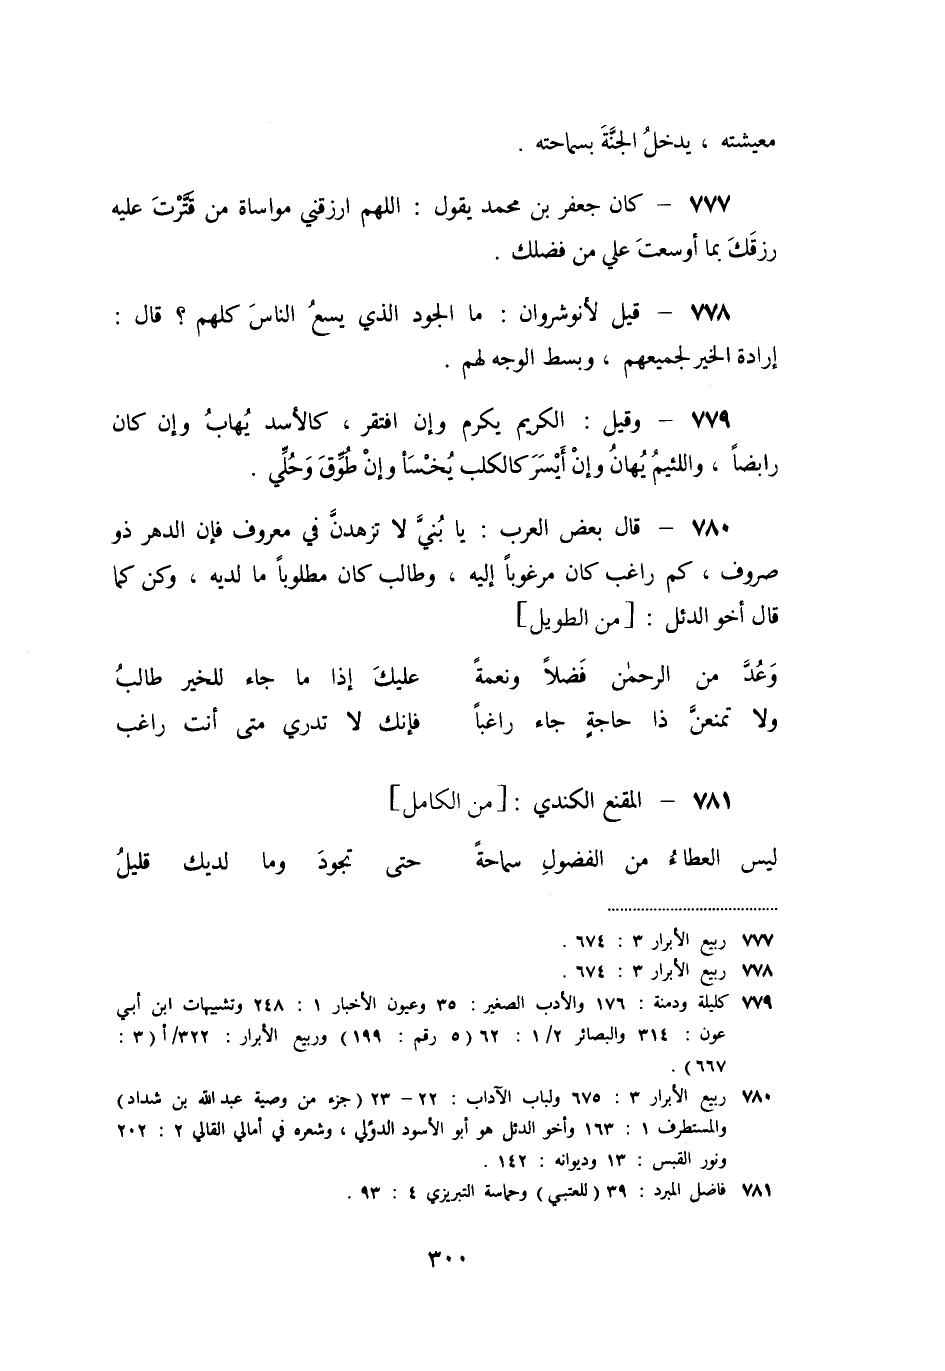 معيشته ، يدخلُ الجنَّةَ بسماحته .
٧٧٧ – كان جعفر بن محمد يقول : اللهم ارزقني مواساة من قَتَّرْتَ عليه
رزقَكَ بما أوسعتَ علي من فضلك .
٧٧٨ – قيل لأنوشروان : ما الجود الذي يسعُ الناسَ كلهم ؟ قال :
إرادة الخير لجميعهم ، وبسط الوجه لهم .
٧٧٩ – وقيل : الكريم يكرم وإن افتقر ، كالأسد يُهابُ وإن كان
رابضاً ، واللئيمُ يُهانُ وإنْ أَيْسَرَ كالكلب يُخْسَأ وإنْ طُوِّقَ وَحُلِّي .
٧٨٠ – قال بعض العرب : يا بُنيَّ لا تزهدنَّ في معروف فإن الدهر ذو
صروف ، كم راغب كان مرغوباً إليه ، وطالب كان مطلوباً ما لديه ، وكن كما
قال أخو الدئل : [من الطويل]
وَعُدَّ من الرحمٰن فَضلاً ونعمةً عليكَ إذا ما جاء للخير طالبُ
ولا تمنعنَّ ذا حاجةٍ جاء راغباً فإنك لا تدري متى أنت راغب
٧٨١ – المقنع الكندي : [من الكامل]
ليس العطاءُ من الفضولِ سماحةً حتى تجودَ وما لديك قليلُ
٧٧٧ ربيع الأبرار ٣ : ٦٧٤ .
٧٧٨ ربيع الأبرار ٣ : ٦٧٤ .
٧٧٩ كليلة ودمنة : ١٧٦ والأدب الصغير : ٣٥ وعيون الأخبار ١ : ٢٤٨ وتشبيهات ابن أبي
عون : ٣١٤ والبصائر ٢/ ١ : ٦٢ (٥ رقم : ١٩٩) وربيع الأبرار : ٣٢٢/أ (٣ :
٦٦٧) .
٧٨٠ ربيع الأبرار ٣ : ٦٧٥ ولباب الآداب : ٢٢ – ٢٣ (جزء من وصية عبد الله بن شداد)
والمستطرف ١ : ١٦٣ وأخو الدئل هو أبو الأسود الدؤلي ، وشعره في أمالي القالي ٢ : ٢٠٢
ونور القبس : ١٣ وديوانه : ١٤٢ .
٧٨١ فاضل المبرد : ٣٩ (للعتبي) وحماسة التبريزي ٤ : ٩٣ .
٣٠٠